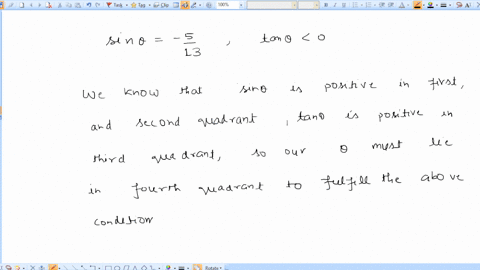 sinθ = -5/13 , tanθ < 0
We know that sinθ is positive in first,
and second quadrant, tanθ is positive in
third quadrant, so our θ must lie
in fourth quadrant to fulfill the above
condition